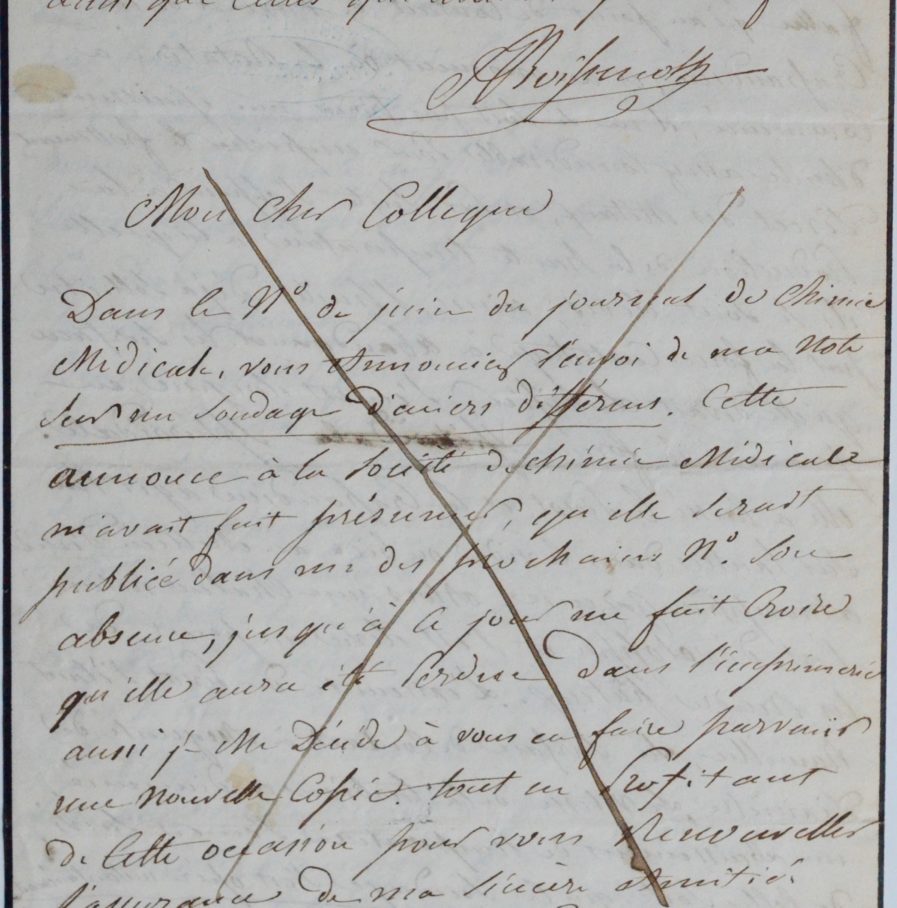 ainsi que celles que
ABoissenot
Mon cher Collegue
Dans le N° de juin du journal de Chimie
Médicale, vous Annonciez l'envoi de ma Note
sur un sondage d'aciers différens. Cette
annonce à la Société de chimie Médicale
m'avait fait présumer, qu'elle serait
publiée dans un des prochains N°. Son
absence, jusqu'à ce jour me fait Croire
qu'elle aura été Perdue dans l'imprimerie
aussi je Me Décide à vous en faire parvenir
une Nouvelle Copie. tout en Profitant
de Cette occasion pour vous Renouveller
l'assurance de ma sincère Amitié.